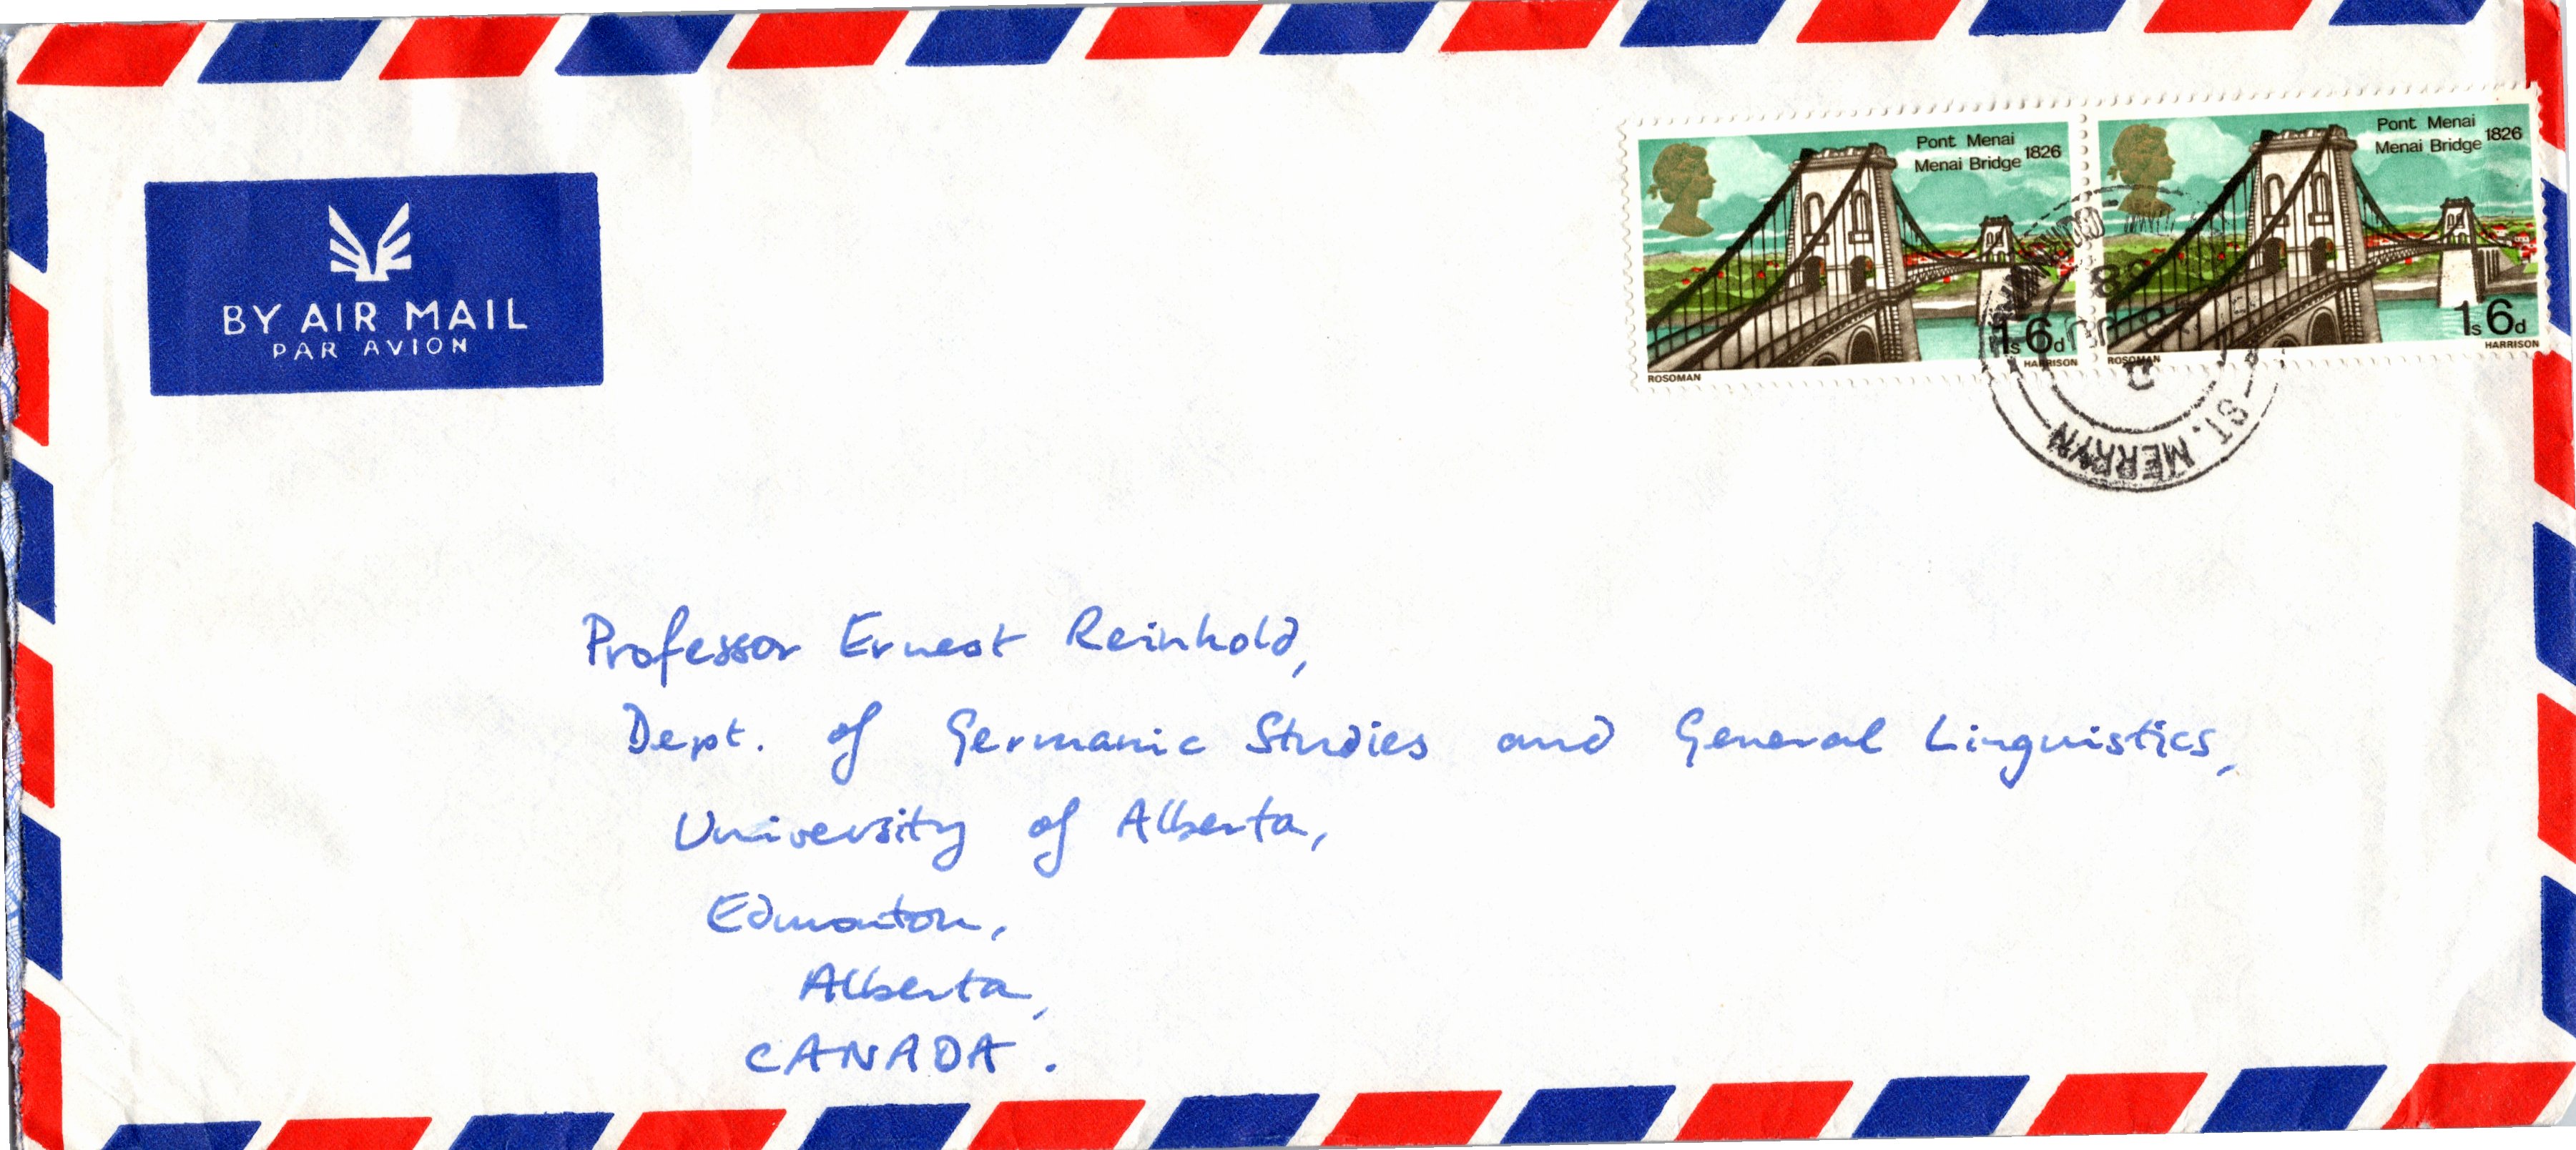 BY AIR MAIL
PAR AVION
Pont Menai
Menai Bridge 1826
1s 6d
ROSOMAN
HARRISON
Pont Menai
Menai Bridge 1826
1s 6d
ROSOMAN
HARRISON
ST. MERRYN
Professor Ernest Reinhold,
Dept. of Germanic Studies and General Linguistics,
University of Alberta,
Edmonton,
Alberta,
CANADA.